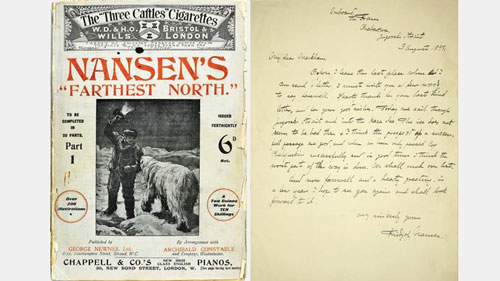 "The Three Castles" Cigarettes
W.D. & H.O.
WILLS
BRISTOL &
LONDON
NANSEN'S
"FARTHEST NORTH."
TO BE
COMPLETED
IN
20 PARTS.
Part
1
ISSUED
FORTNIGHTLY
6D
Net.
Over
200
Illustrations
A
Two Guinea
Work for
TEN
Shillings
Published by
GEORGE NEWNES, Ltd.,
Southampton Street, Strand, W.C.
By Arrangement with
ARCHIBALD CONSTABLE
and Company, Westminster.
CHAPPELL & CO.'S NEW HIGH CLASS ENGLISH PIANOS,
50, NEW BOND STREET, LONDON, W. (See page facing text inside)
Fram
3 August
My dear Markham
Before I leave this last place where I
can send a letter I must write you a few words
to say farewell. Hearty thanks for your last kind
letter, and for your good wishes. Today we sail through
Strait and into the Kara Sea. The ice does not
seem to be bad I think the of a success-
ful passage are good, and when we have only passed Cape
successfully and in good time I think the
worst part of the way is done. We shall our best.
And now farewell and a hearty greeting, in
a few years I hope to see you again and shall look
forward to it.
very sincerely yours
Fridtjof Nansen